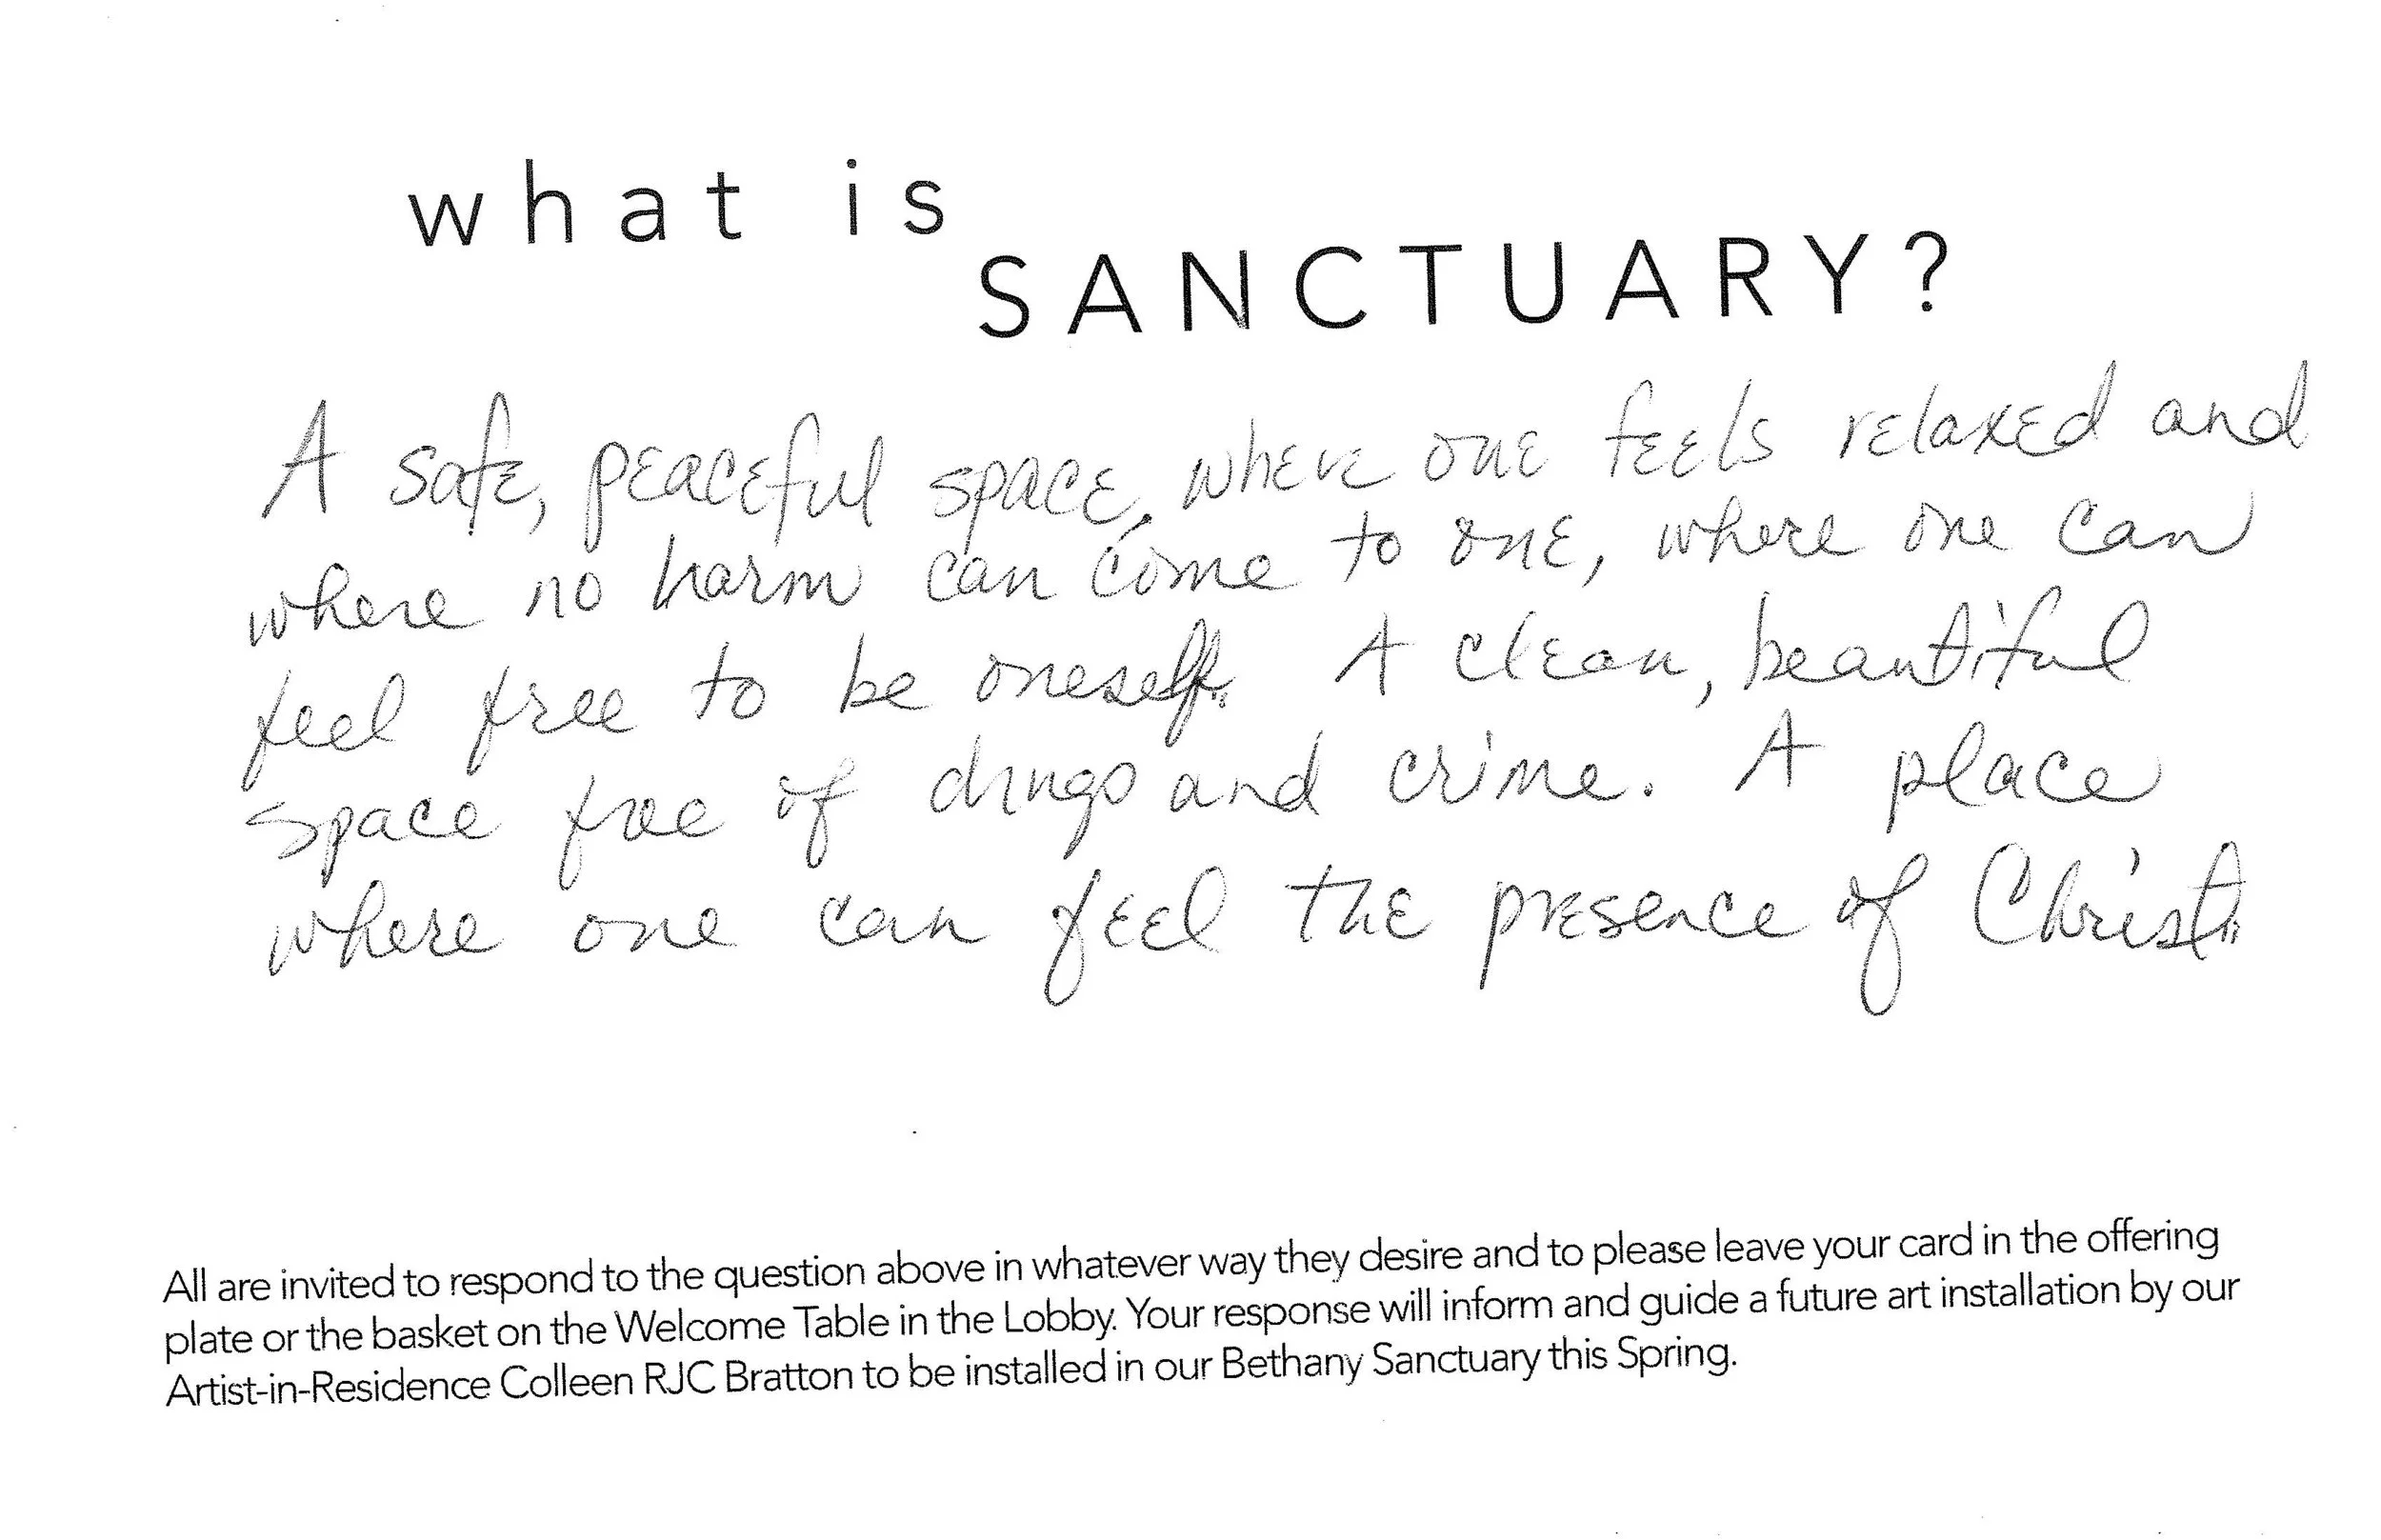 what is
SANCTUARY?
A safe, peaceful space, where one feels relaxed and
where no harm can come to one, where one can
feel free to be oneself. A clean, beautiful
space free of drugs and crime. A place
where one can feel the presence of Christ.
All are invited to respond to the question above in whatever way they desire and to please leave your card in the offering
plate or the basket on the Welcome Table in the Lobby. Your response will inform and guide a future art installation by our
Artist-in-Residence Colleen RJC Bratton to be installed in our Bethany Sanctuary this Spring.